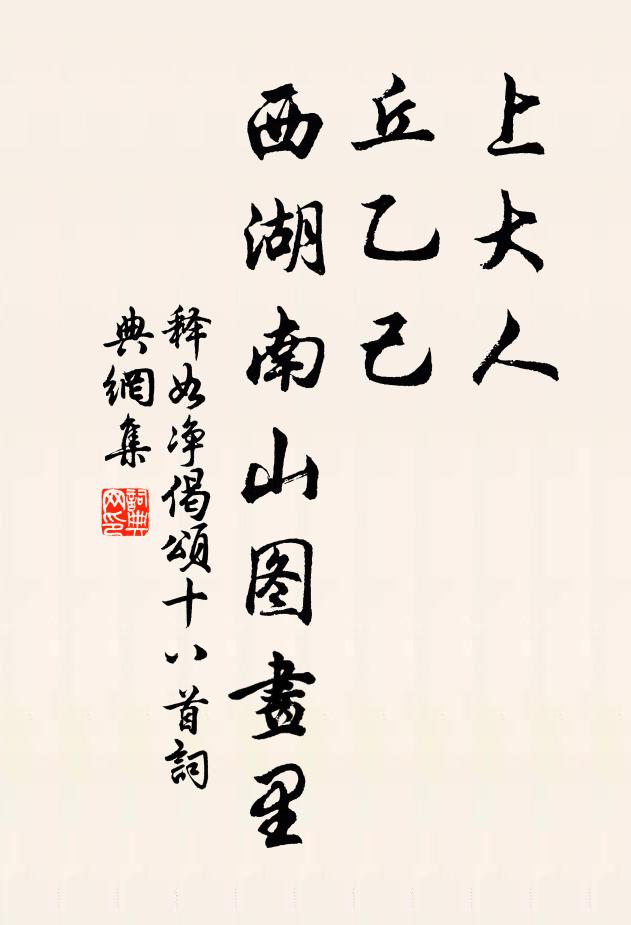 上大人
丘乙己
西湖南山图畫里
释如净偈頌十八首詞
典網集
詞典网印